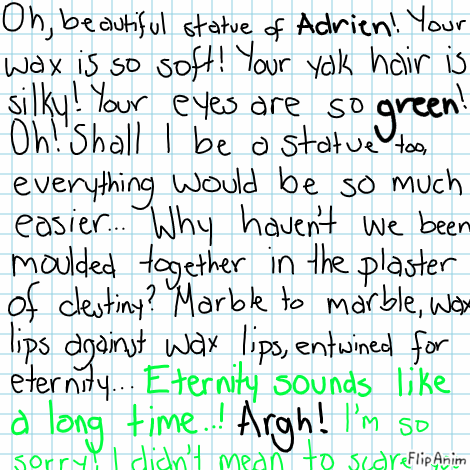 Oh, beautiful statue of Adrien! Your
wax is so soft! Your yak hair is
silky! Your eyes are so green!
Oh! Shall I be a statue too,
everything would be so much
easier... Why haven't we been
moulded together in the plaster
of destiny? Marble to marble, wax
lips against wax lips, entwined for
eternity... Eternity sounds like
a long time..! Argh! I'm so
sorry! I didn't mean to scare
FlipAnim